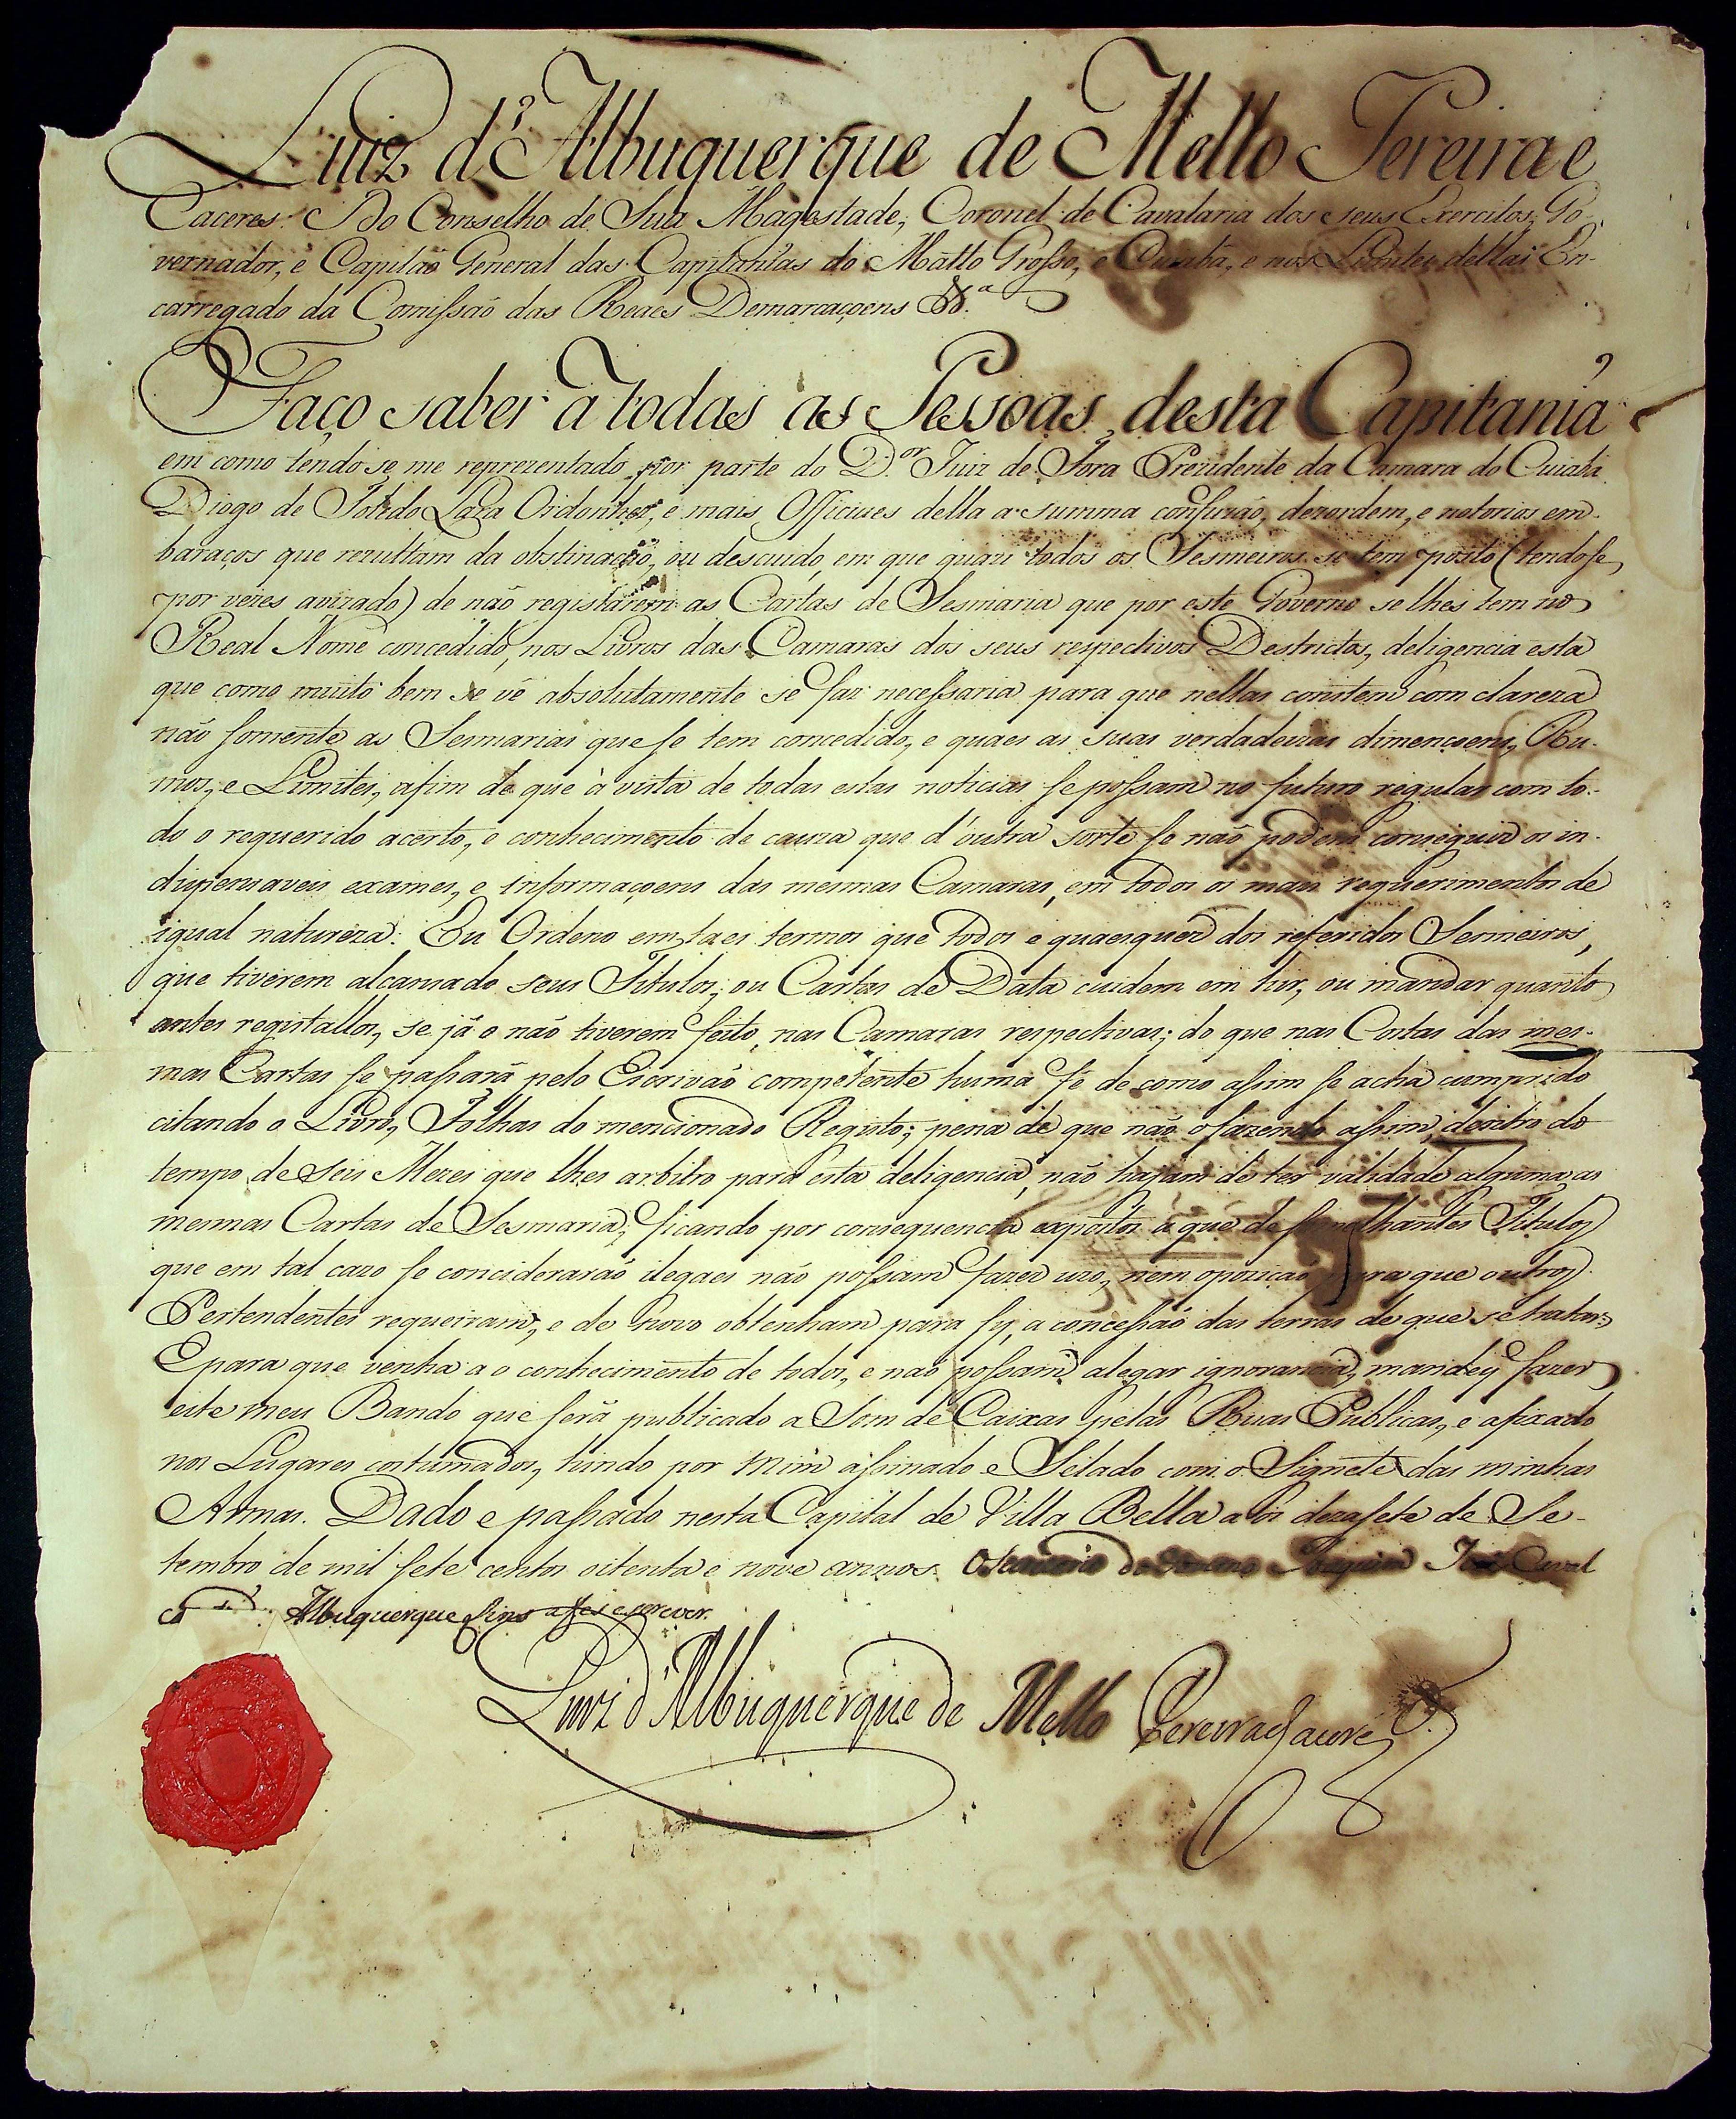 Luiz d'Albuquerque de Mello Pereira e
Caceres. Do Conselho de Sua Magestade, Coronel de Cavalaria dos seus Exercitos, Go-
vernador, e Capitaõ General das Capitanias do Matto Grosso, e Cuiabá, e nos Limites dellas En-
carregado da Comissaõ das Reaes Demarcaçoens &.ª
Faço saber a todas as Pessoas desta Capitania
em como tendo-se me reprezentado por parte do D.or Juiz de Fora Prezidente da Camara do Cuiabá
Diogo de Toledo Lara Ordonhes, e mais Officiaes della a summa confuzaõ, dezordem, e notorios em-
baraços que rezultam da obstinaçaõ, ou descuido, em que quazi todos os Sesmeiros se tem posto (tendose
por vezes avizado) de naõ registarem as Cartas de Sesmaria que por este Governo se lhes tem no
Real Nome concedido, nos Livros das Camaras dos seus respectivos Destrictos, deligencia esta
que como muito bem se vê absolutamente se faz necessaria para que nellas constem com clareza
naõ somente as Sesmarias que se tem concedido, e quaes as suas verdadeiras dimençoens, Ru-
mos, e Limites, afim de que à vista de todas estas noticias se possam no futuro regular com to-
do o requerido acerto, e conhecimento de cauza que d'outra sorte se naõ podem conseguir os in-
dispensaveis exames, e informaçoens das mesmas Camaras, em todos os mais requerimentos de
igual natureza: Eu Ordeno em taes termos que todos e quaesquer dos referidos Sesmeiros,
que tiverem alcansado seus Titulos, ou Cartas de Data cuidem em hir, ou mandar quanto
antes registallos, se já o naõ tiverem feito, nas Camaras respectivas; do que nas Costas das mes-
mas Cartas se passará pelo Escrivaõ competente huma fé de como assim se acha cumprido
citando o Livro, Folhas do mencionado Registo; pena de que naõ o fazendo assim, dentro do
tempo de seis Mezes que lhes arbitro para esta deligencia, naõ hajam de ter validade alguma, as
mesmas Cartas de Sesmaria; ficando por consequencia expostos a que de semelhantes Titulos
que em tal cazo se conciderarão ilegaes naõ possam fazer uzo, nem opoziçaõ para que outros
Pertendentes requeiram, e de novo obtenham para sy, a concessaõ das terras de que se tratar:
E para que venha a o conhecimento de todos, e naõ possam alegar ignorancia, mandey fazer
este meu Bando que será publicado a Som de Caixas pelas Ruas Publicas, e afixado
nos Lugares costumados, hindo por mim assinado e Selado com o Signete das minhas
Armas. Dado e passado nesta Capital de Villa Bella a os dezasete de Se-
tembro de mil sete centos oitenta e nove annos. O Joaquim Joze Caval
Albuquerque Lins a fes escrever.
Luiz d'Albuquerque de Mello Pereira e Caceres